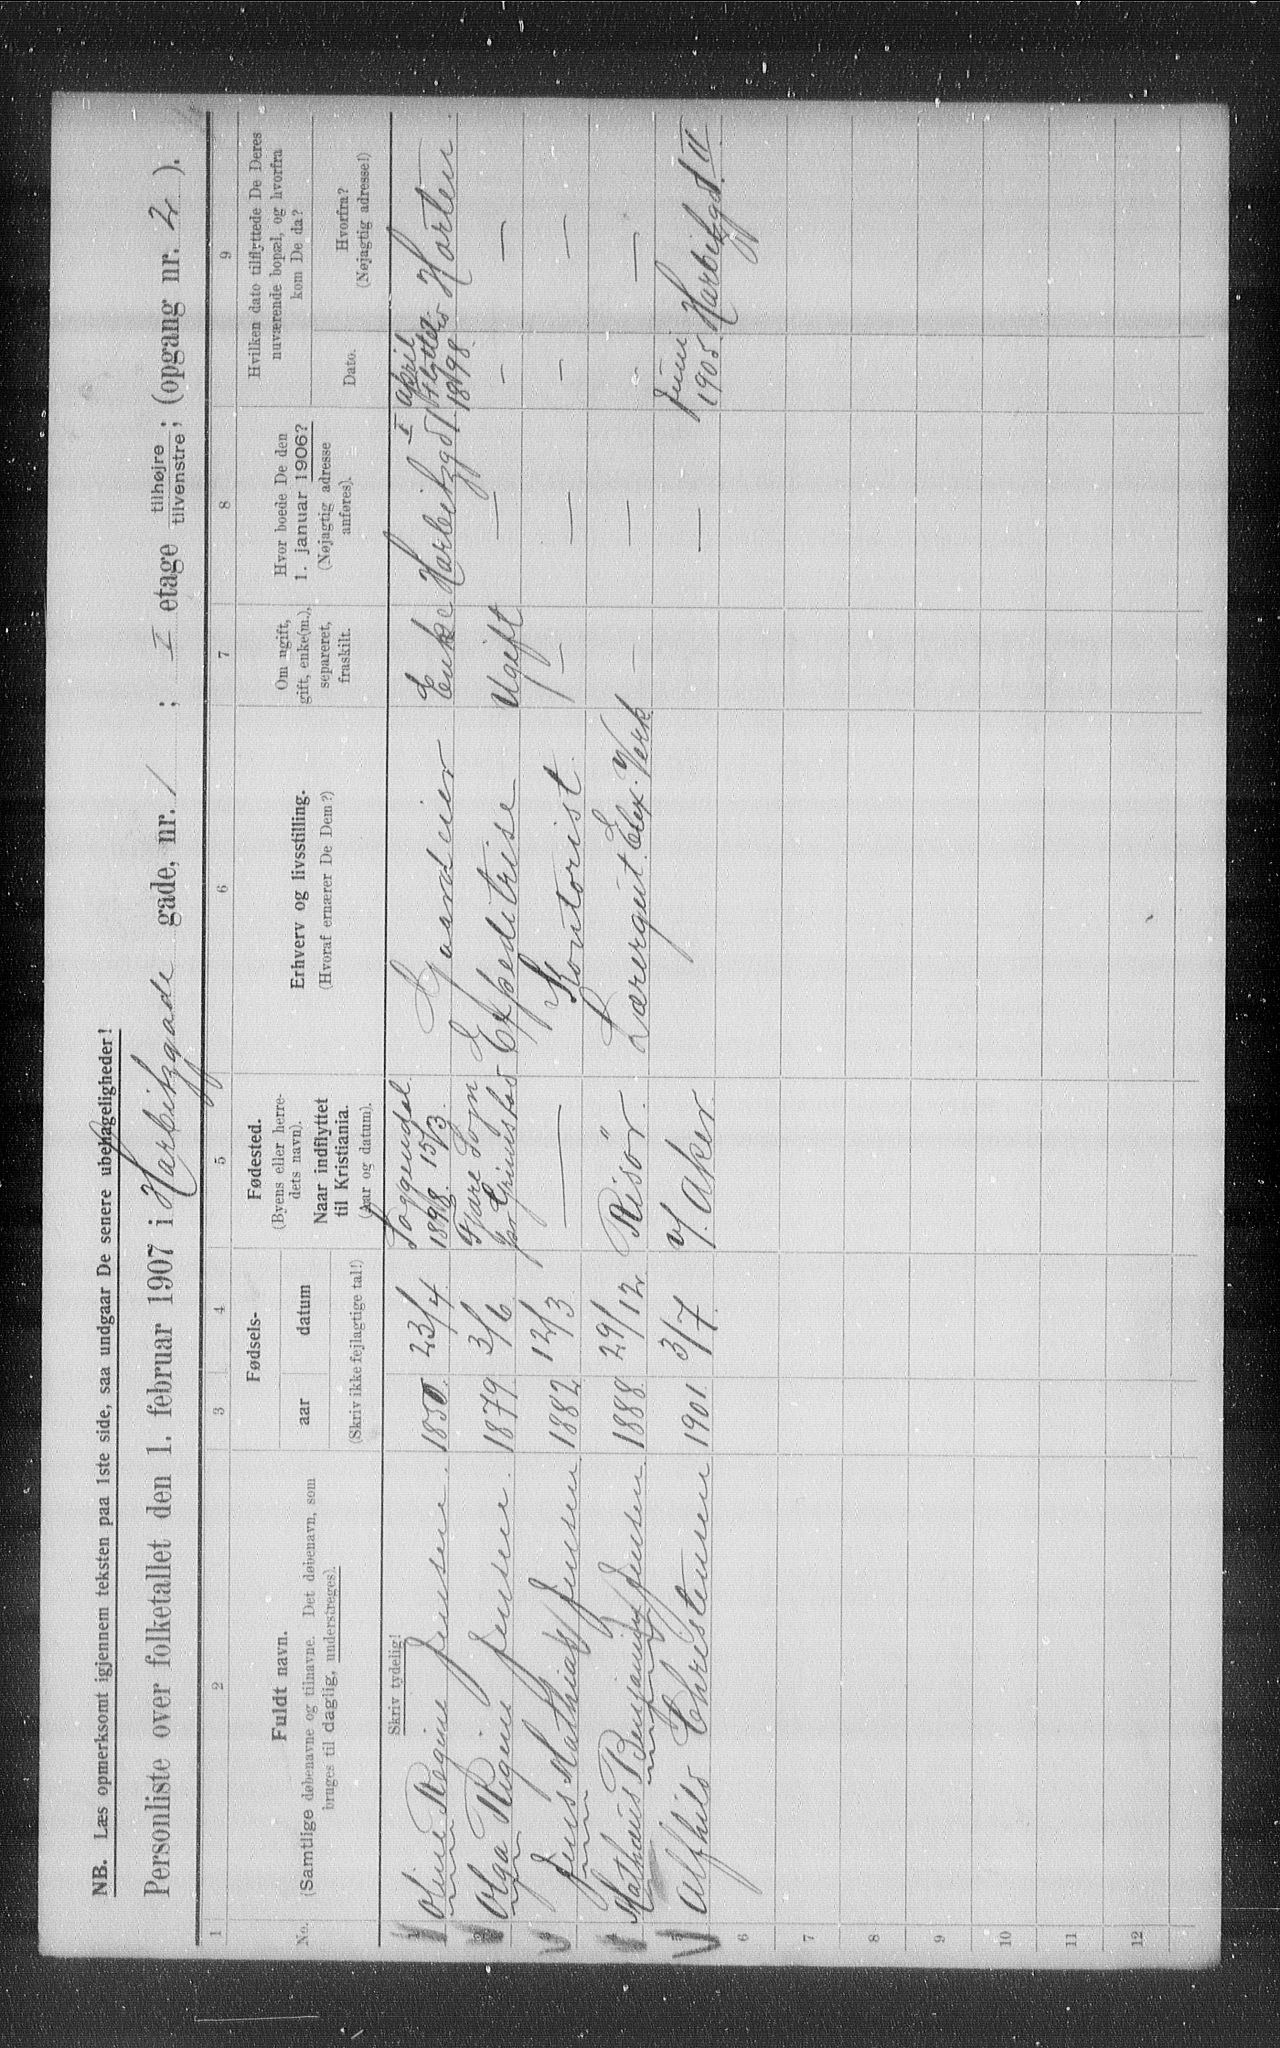 NB. Læs opmerksomt igjennem teksten paa 1ste side, saa undgaar De senere ubehageligheder!
Personliste over folketallet den 1. februar 1907 i Harbitzgade gade, nr. 1 ; I etage tilhøjre tilvenstre; (opgang nr. 2 ).
1 2 3 4 5 6 7 8 9
No.
Fuldt navn.
(Samtlige døbenavne og tilnavne. Det døbenavn, som
bruges til daglig, understreges).
Skriv tydelig!
Fødsels-
aar datum
(Skriv ikke fejlagtige tal!)
Fødested.
(Byens eller herre-
dets navn).
Naar indflyttet
til Kristiania.
(Aar og datum).
Erhverv og livsstilling.
(Hvoraf ernærer De Dem?)
Om ugift,
gift, enke(m.),
separeret,
fraskilt.
Hvor boede De den
1. januar 1906?
(Nøjagtig adresse
anføres).
Hvilken dato tilflyttede De Deres
nuværende bopæl, og hvorfra
kom De da?
Dato.
Hvorfra?
(Nøjagtig adresse!)
Oline Regine Jensen. 1850. 23/4 Soggendal. 1898. 15/3. Gaardeier Enke Harbitzgd 1. I April 1898. Horten
Olga Regine Jensen. 1879. 3/6 Fjære Sogn pr Grimstad Expeditrise Ugift — — —
Jens Mathias Jensen 1882 12/3 — Kontorist. — — — —
Mathæus Benjamin Jensen 1888. 29/12. Risör. Lærergut. Elex. Verk. — — — —
Alfhild Christensen 1901 3/7. v/. Aker. — Juni 1905. Harbitzgd 1. II
6
7
8
9
10
11
12